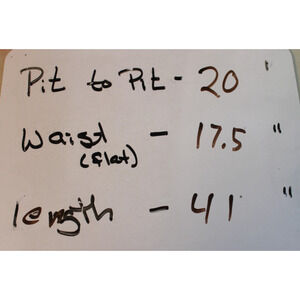 Pit to Pit - 20 '
Waist - 17.5 "
(flat)
length - 41 "